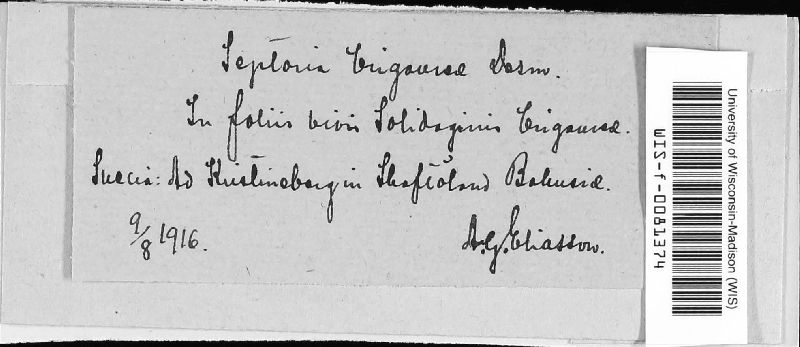 Septoria Virgaureæ Desm.
In foliis vivis Solidaginis Virgaureæ.
Suecia: Ad Kristineberg in Skaftöland Bahusiæ.
9/8 1916.
A.G. Eliasson.
University of Wisconsin-Madison (WIS)
WIS-f-0081374